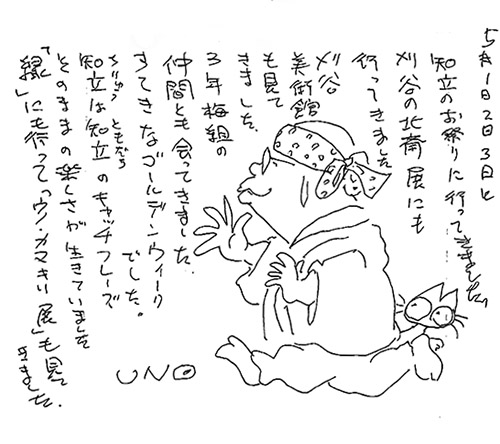 5月1日2日3日と
知立のお祭りに行ってきました。
刈谷の北斎展にも
行ってきました
刈谷
美術館
も見て
きました。
3年梅組の
仲間とも会ってきました。
すてきなゴールデンウィーク
でした。
ちりゅう ともだち
知立は知立のキャッチフレーズ
そのままの楽しさが生きていました
「縁」にも行って カマキリ展」も見て
きました。
UNO